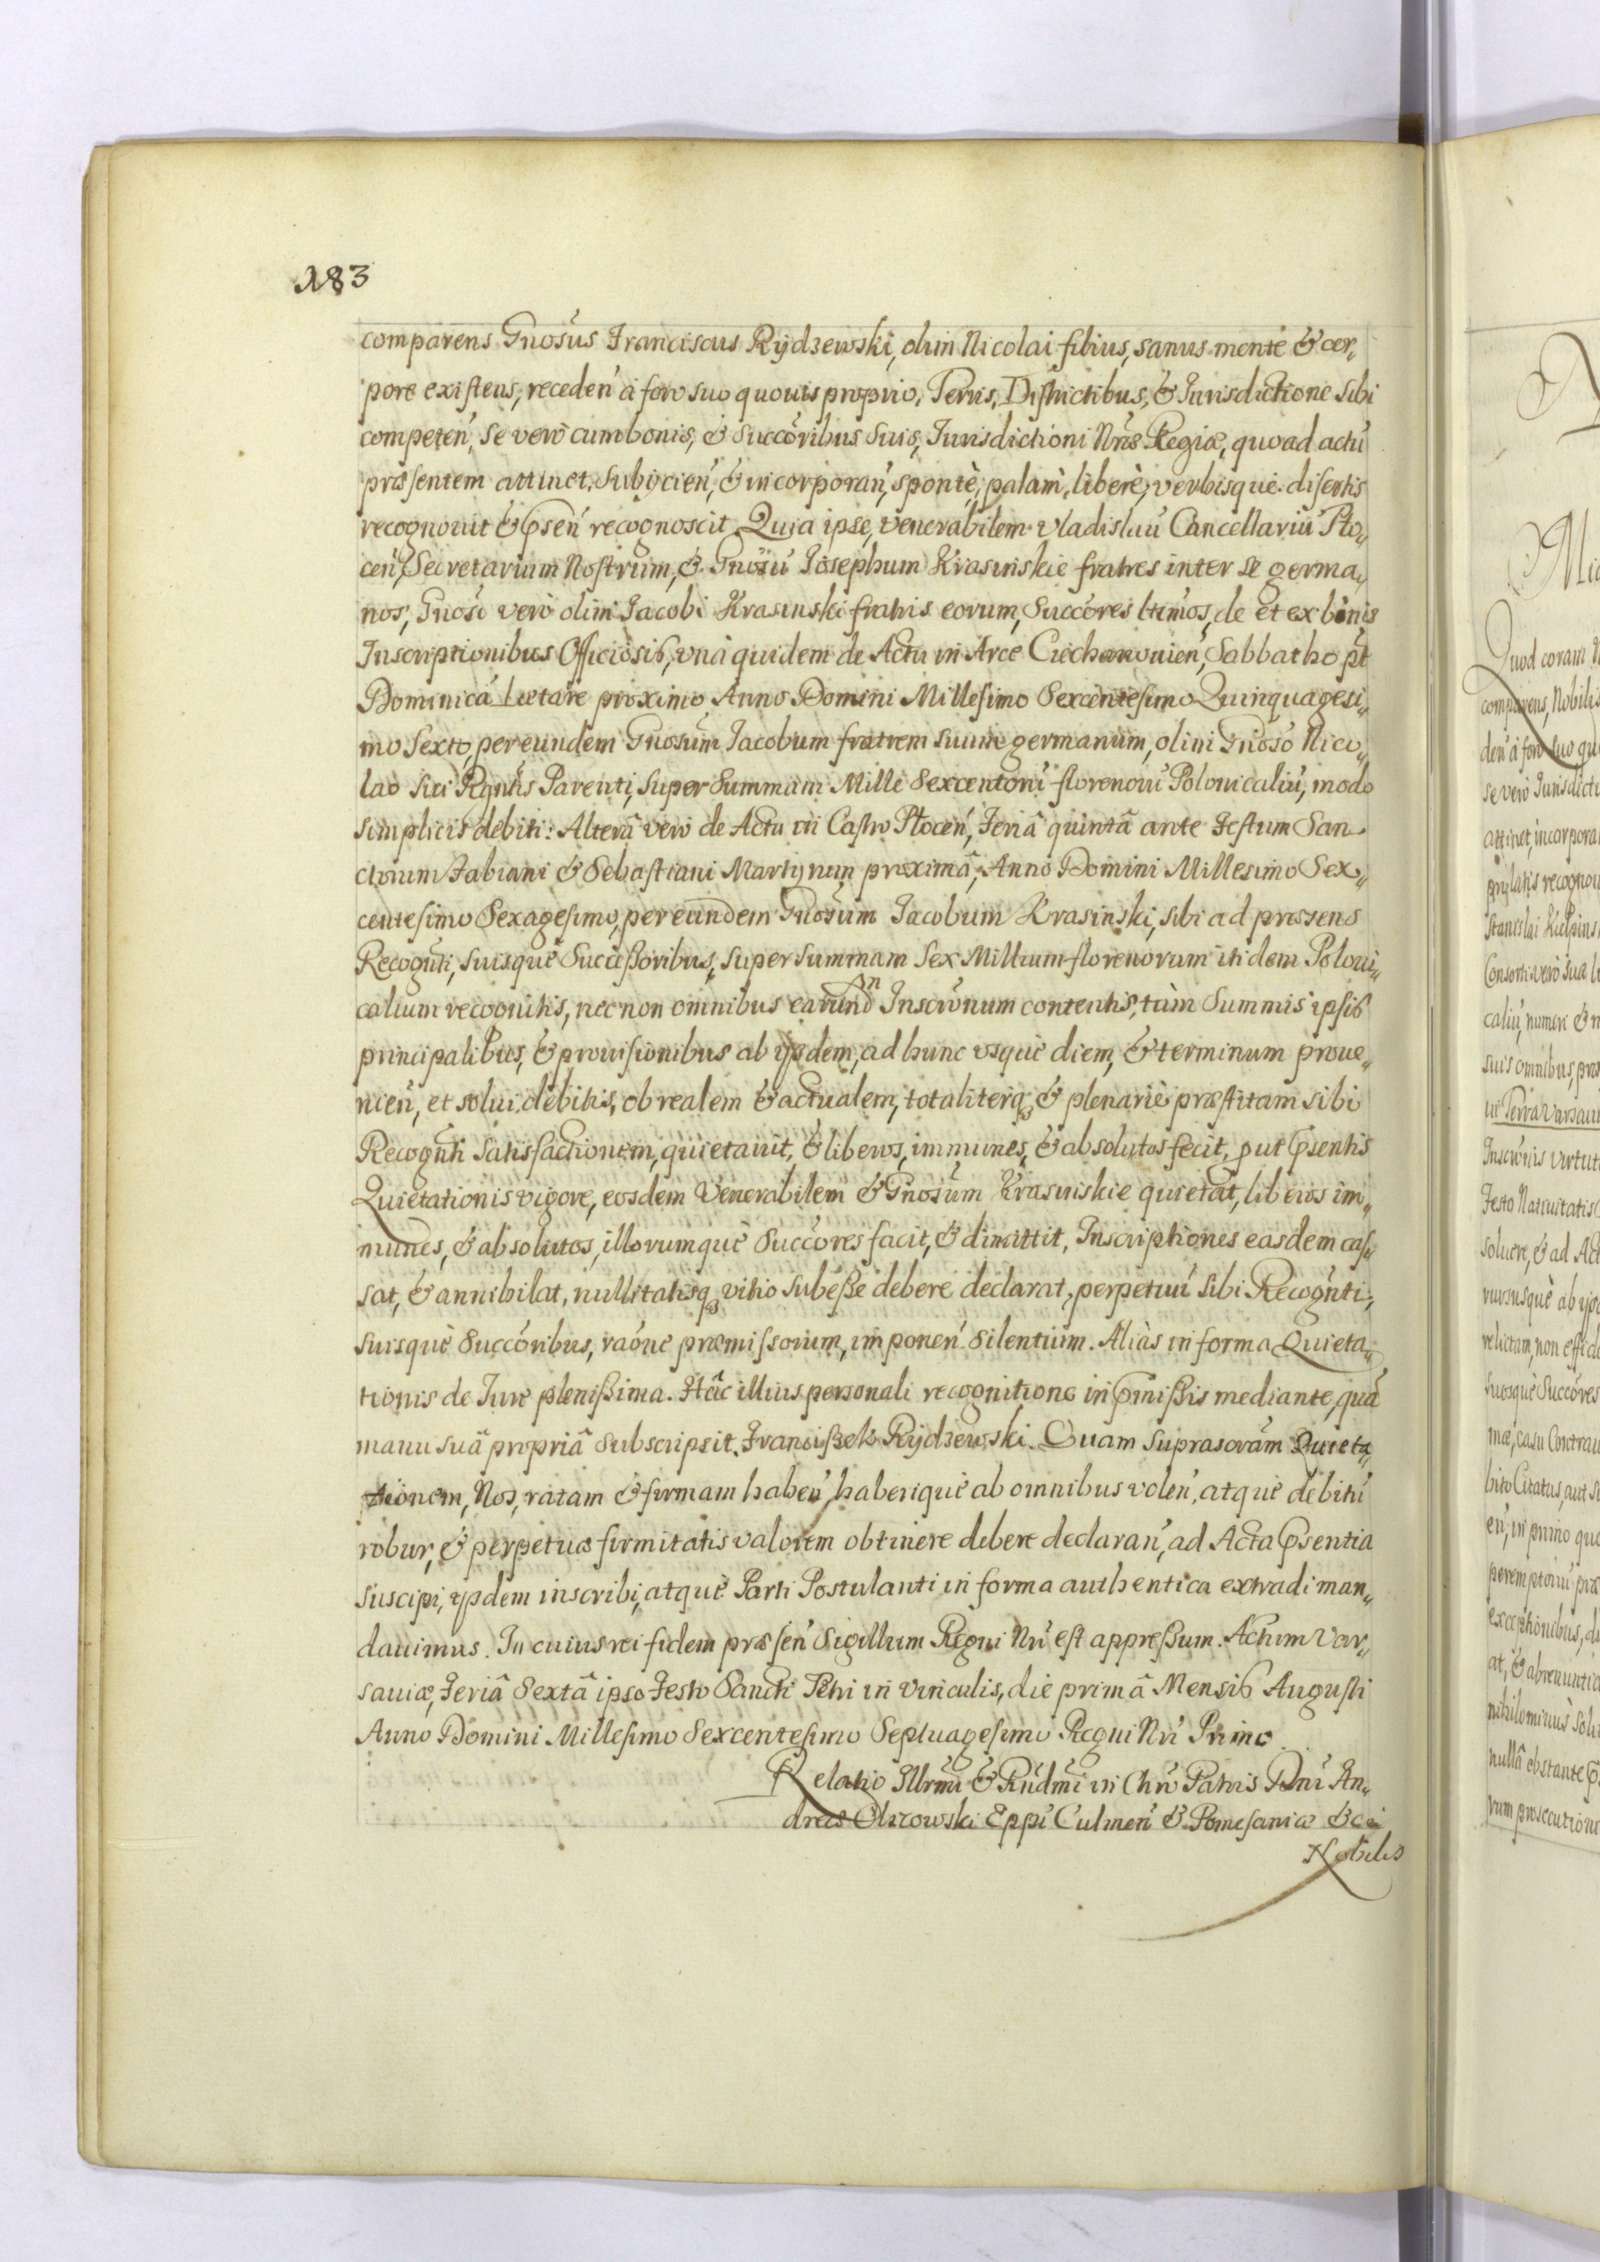 183
comparens Gnosus Franciscus Rydzewski, olim Nicolai filius, sanus mente & cor„
pore existens, receden̄ à foro suo quouis proprio, Terris, Districtibus, & Jurisdictione sibi
competen̄, se verò cum bonis, & succōribus suis, Jurisdictioni Nr̄æ Regiæ, quo ad actū
præsentem attinet, subijcien̄, & incorporan̄, spontè, palàm, liberè, verbisquè disertis
recognouit & p̄sen̄ recognoscit. Quia ipse, venerabilem Vladislaū Cancellariū Plo„
cen̄, Secretarium Nostrum, & Gnosū Josephum Krasinskie fratres inter se germa„
nos, Gnosi verò olim Jacobi Krasinski fratris eorum, Succōres ltimos, de et ex binis
Inscriptionibus Officiosis, vnâ quidem de Actu in Arce Ciechanouien̄, Sabbatho pt
Dominicā Lætare proximo Anno Domini Millesimo Sexcentesimo Quinquagesi„
mo Sexto, per eundem Gnosum Jacobum fratrem suum germanum, olim Gnoso Nico„
lao sui Rgntis Parenti, super Summam Mille Sexcentorū florenorū Polonicaliū, modo
simplicis debiti: Alterâ verò de Actu in Castro Plocen̄, Feriâ quintâ ante Festum San„
ctorum Fabiani & Sebastiani Martyrum proximâ, Anno Domini Millesimo Sex„
centesimo Sexagesimo, per eundem Gnosum Jacobum Krasinski, sibi ad præsens
Recognti, suisquè Successoribus, super summam Sex Millium florenorum itidem Poloni„
calium recognitis, nec non omnibus earund̄n Inscrōnum contentis, tàm Summis ipsis
principalibus, & prouisionibus ab ijsdem, ad hunc vsquè diem, & terminum proue„
nien̄, et solui debitis, ob realem & actualem, totaliterq; & plenariè præstitam sibi
Recognti Satisfactionem, quietauit, & liberos, immunes, & absolutos fecit, put p̄sentis
Quietationis vigore, eosdem Venerabilem & Gnosum Krasinskie quietat, liberos im„
munes, & absolutos, illorumquè Succōres facit, & dimittit, Inscriptiones easdem cas„
sat, & annihilat, nullitatisq; vitio subesse debere declarat, perpetuū sibi Recognti,
suisquè Succōribus, raōne præmissorum, imponen̄ silentium. Aliàs in forma Quieta„
tionis de Jure plenissima. Hâc illius personali recognitione in p̄missis mediante, quā
manu suâ propriâ subscripsit. Franciszek Rydzewski. Quam suprascrām Quieta„
tionem, Nos, ratam & firmam haben̄, haberiquè ab omnibus volen̄, atquè debitū
robur, & perpetuæ firmitatis valorem obtinere debere declaran̄, ad Acta p̄sentia
suscipi, ijsdem inscribi, atquè Parti Postulanti in forma authentica extradi man„
dauimus. In cuius rei fidem præsen̄ Sigillum Regni Nrī est appressum. Actum Var„
sauiæ, Feriâ Sextâ ipso Festo Sancti Petri in vinculis, die primâ Mensis Augusti
Anno Domini Millesimo Sexcentesimo Septuagesimo Regni Nrī Primo
Relatio Illrmi & Rndmi in Chro Patris Dnī An„
dreæ Olszowski Eppi Culmen̄ & Pomesaniæ &c
Nobilis